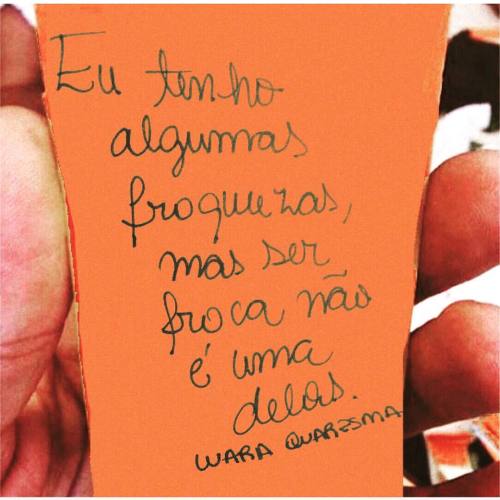 Eu tenho
algumas
fraquezas,
mas ser
fraca não
é uma
delas.
WARA QUARESMA